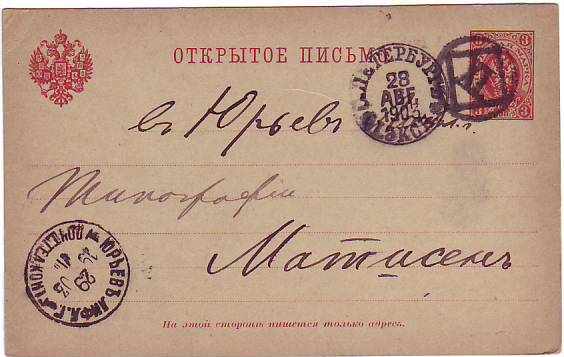 ОТКРЫТОЕ ПИСЬМО
С.-ПЕТЕРБУРГЪ
28
АВГ.
1903
3
3
въ Юрьевъ
Типографія
Матисенъ
ЮРЬЕВЪ ЛИФЛ. Г.
29
03
На этой сторонѣ пишется только адресъ.